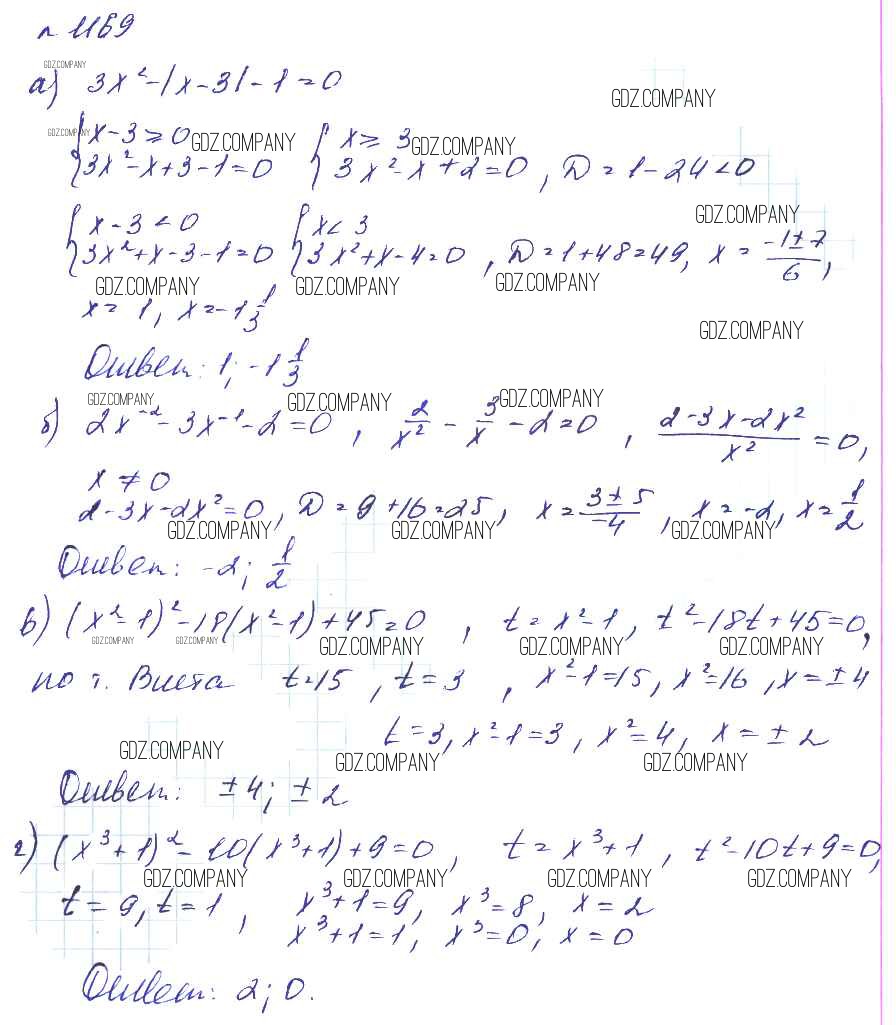 n 1169
GDZ.COMPANY
а) 3x² - |x - 3| - 1 = 0
GDZ.COMPANY
GDZ.COMPANY { x - 3 ≥ 0 GDZ.COMPANY { x ≥ 3 GDZ.COMPANY
{ 3x² - x + 3 - 1 = 0 { 3x² - x + 2 = 0 , D = 1 - 24 < 0
GDZ.COMPANY
{ x - 3 < 0 { x < 3
{ 3x² + x - 3 - 1 = 0 { 3x² + x - 4 = 0 , D = 1 + 48 = 49, x = (-1 ± 7)/6 ,
GDZ.COMPANY GDZ.COMPANY GDZ.COMPANY
x = 1, x = -1 1/3
GDZ.COMPANY
Ответ: 1; -1 1/3
GDZ.COMPANY GDZ.COMPANY GDZ.COMPANY
б) 2x⁻² - 3x⁻¹ - 2 = 0 , 2/x² - 3/x - 2 = 0 , (2 - 3x - 2x²)/x² = 0,
x ≠ 0
2 - 3x - 2x² = 0, D = 9 + 16 = 25, x = (3 ± 5)/-4 , x = -2, x = 1/2
GDZ.COMPANY GDZ.COMPANY GDZ.COMPANY
Ответ: -2; 1/2
в) (x² - 1)² - 18(x² - 1) + 45 = 0 , t = x² - 1 , t² - 18t + 45 = 0,
GDZ.COMPANY GDZ.COMPANY GDZ.COMPANY GDZ.COMPANY GDZ.COMPANY
по т. Виета t = 15 , t = 3 , x² - 1 = 15, x² = 16 , x = ± 4
t = 3, x² - 1 = 3 , x² = 4, x = ± 2
GDZ.COMPANY GDZ.COMPANY GDZ.COMPANY
Ответ: ± 4; ± 2
г) (x³ + 1)² - 10(x³ + 1) + 9 = 0 , t = x³ + 1 , t² - 10t + 9 = 0,
GDZ.COMPANY GDZ.COMPANY GDZ.COMPANY GDZ.COMPANY
t = 9, t = 1 , x³ + 1 = 9, x³ = 8, x = 2
x³ + 1 = 1, x³ = 0, x = 0
Ответ: 2; 0.